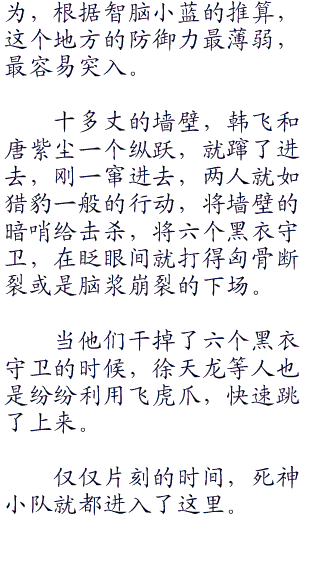 为，根据智脑小蓝的推算，
这个地方的防御力最薄弱，
最容易突入。
十多丈的墙壁，韩飞和
唐紫尘一个纵跃，就蹿了进
去，刚一窜进去，两人就如
猎豹一般的行动，将墙壁的
暗哨给击杀，将六个黑衣守
卫，在眨眼间就打得匈骨断
裂或是脑浆崩裂的下场。
当他们干掉了六个黑衣
守卫的时候，徐天龙等人也
是纷纷利用飞虎爪，快速跳
了上来。
仅仅片刻的时间，死神
小队就都进入了这里。